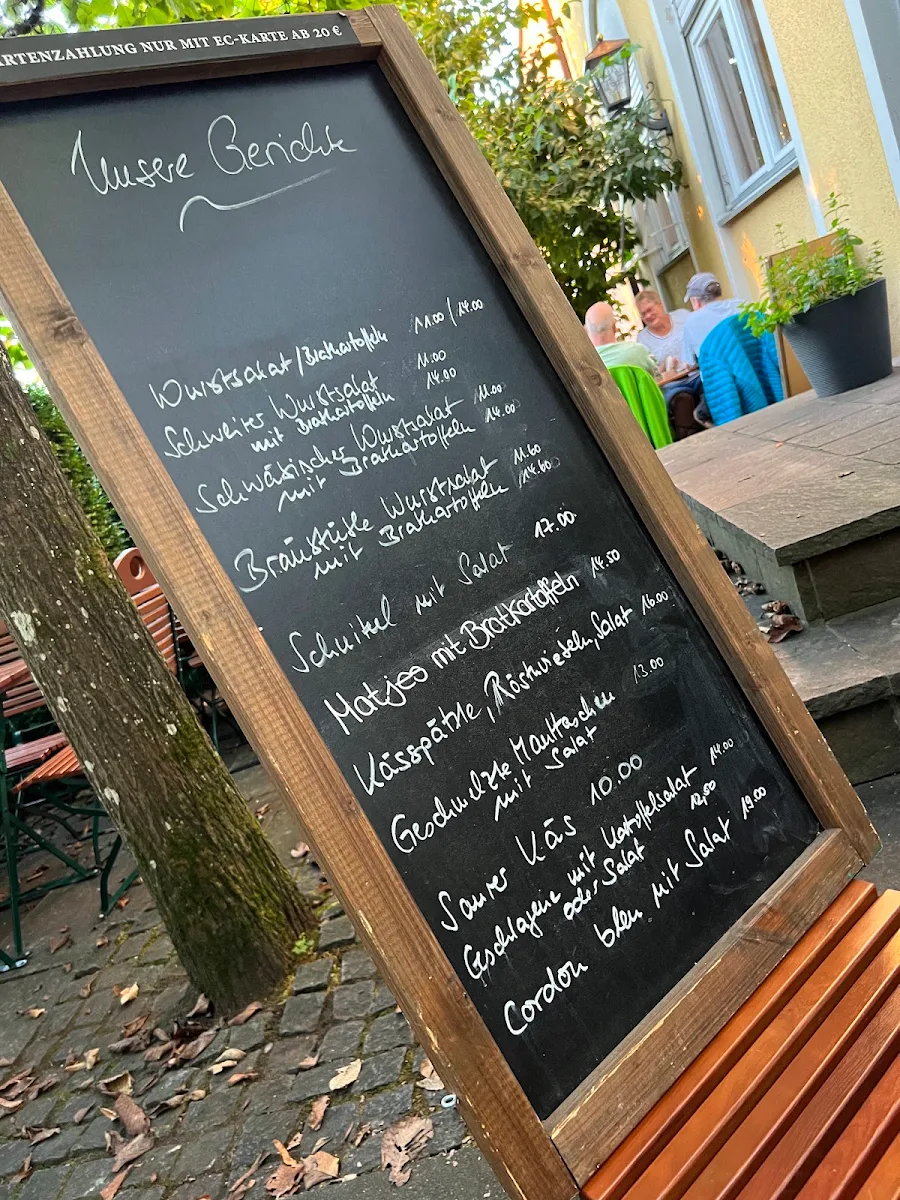 ARTENZAHLUNG NUR MIT EC-KARTE AB 20 €
Unsere Gerichte
Wurstsalat/Bratkartoffeln 11.00/14.00
Schweizer Wurstsalat 11.00
mit Bratkartoffeln 14.00
Schwäbischer Wurstsalat 11.00
mit Bratkartoffeln 14.00
Bräustüble Wurstsalat 11.60
mit Bratkartoffeln 14.60
Schnitzel mit Salat 17.00
Matjes mit Bratkartoffeln 14.50
Kässpätzle, Röstzwiebeln, Salat 16.00
Geschmelzte Maultaschen 13.00
mit Salat
Saurer Käs 10.00
Geschlagene mit Kartoffelsalat 14.00
oder Salat 12,50
Cordon bleu mit Salat 19.00